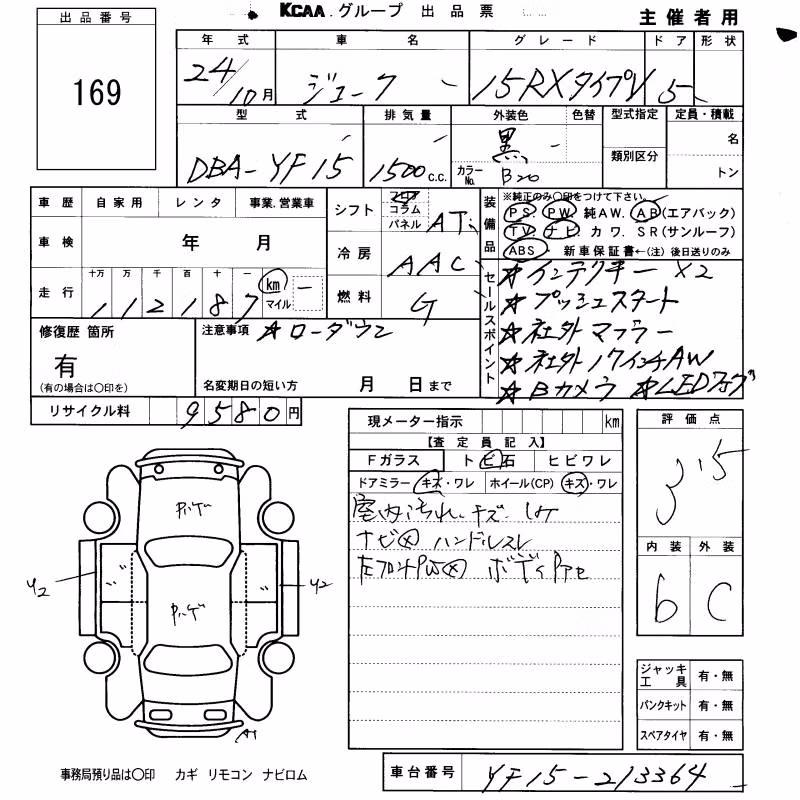 KCAA グループ 出品票
主催者用
出品番号
169
年式 車名 グレード ドア 形状
24/10月 ジューク 15RXタイプV 5
型式 排気量 外装色 色替 型式指定 定員・積載
DBA-YF15 1500c.c. 黒 名
カラーNo. B20 類別区分 トン
車歴 自家用 レンタ 事業、営業車
車検 年 月
走行 十万 万 千 百 十 一 km マイル
112187
シフト フロア コラム パネル AT
冷房 AAC
燃料 G
装備品 ※純正のみ〇印をつけて下さい。
PS. PW. 純AW. AB(エアバック)
TV. ナビ カワ. SR(サンルーフ)
ABS 新車保証書←(注)後日送りのみ
セールスポイント
☆インテクキー ×2
☆プッシュスタート
☆社外マフラー
☆社外17インチAW
☆Bカメラ ☆LEDフォグ
修復歴 箇所
有
(有の場合は〇印を)
注意事項 ☆ローダウン
名変期日の短い方 月 日まで
リサイクル料 9580円
現メーター指示 km
【査定員記入】
Fガラス トビ石 ヒビワレ
ドアミラー キズ・ワレ ホイール(CP) キズ・ワレ
室内汚れ、キズ
ナビ⊗ ハンドルスレ
左フロントPW⊗
評価点
3.5
内装 外装
b C
ジャッキ工具 有・無
パンクキット 有・無
スペアタイヤ 有・無
Y2 Y2
A1
事務局預り品は〇印 カギ リモコン ナビロム
車台番号 YF15-213364